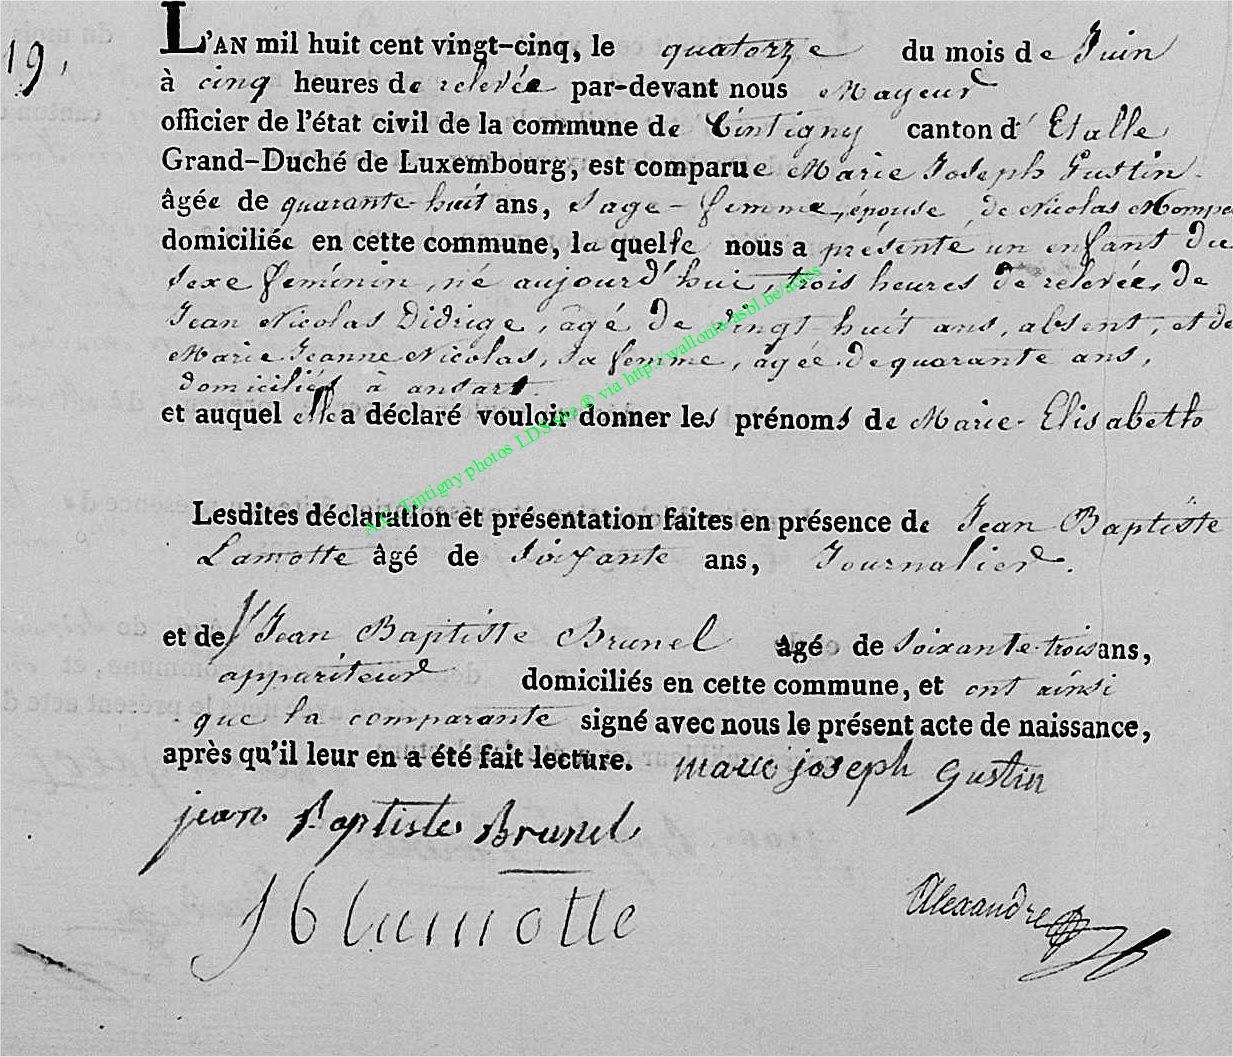 19,
L'AN mil huit cent vingt-cinq, le quatorze du mois de Juin
à cinq heures de relevée par-devant nous Mayeur
officier de l'état civil de la commune de Tintigny canton d'Etalle
Grand-Duché de Luxembourg, est comparue Marie Joseph Gustin
âgée de quarante-huit ans, sage-femme, épouse de Nicolas
domiciliée en cette commune, laquelle nous a présenté un enfant du
sexe féminin, né aujourd'hui, trois heures de relevée, de
Jean Nicolas Didrige, âgé de vingt-huit ans, absent, et de
Marie Jeanne Nicolas, sa femme, agée de quarante ans,
domiciliés à ansart.
et auquel elle a déclaré vouloir donner les prénoms de Marie-Elisabeth
A.C. Tintigny photos LDS site ® via http://wallonia-asbl.be/actes
Lesdites déclaration et présentation faites en présence de Jean Baptiste
Lamotte âgé de soixante ans, Journalier.
et de Jean Baptiste Brunel âgé de soixante-trois ans,
appariteur domiciliés en cette commune, et ont ainsi
que la comparante signé avec nous le présent acte de naissance,
après qu'il leur en a été fait lecture. marie joseph gustin
jean Baptiste Brunel
J b lamotte
Alexandre